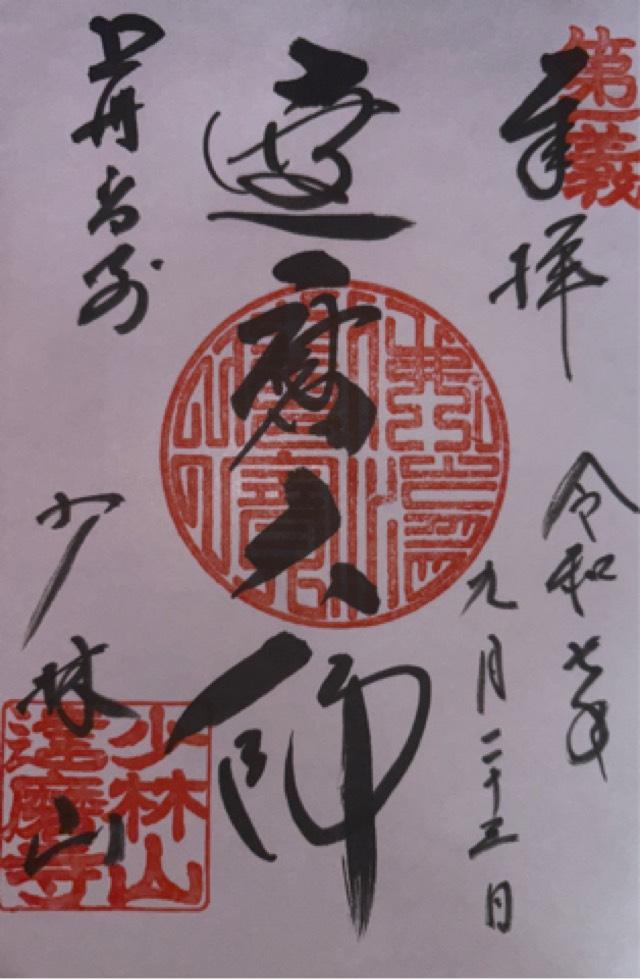 第一義
奉拝
令和七年
九月二十三日
達磨大師
上州
少林山
少林山
達磨寺